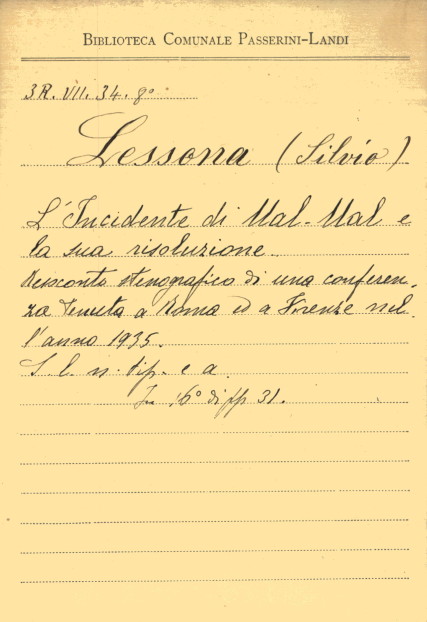 BIBLIOTECA COMUNALE PASSERINI-LANDI
3R. VII. 34. 8º
Lessona (Silvio)
L'Incidente di Ual-Ual e
la sua risoluzione.
Resoconto stenografico di una conferen-
za tenuta a Roma ed a Firenze nel-
l'anno 1935.
S. l. n. tip. e a.
In 16º di pp 31.